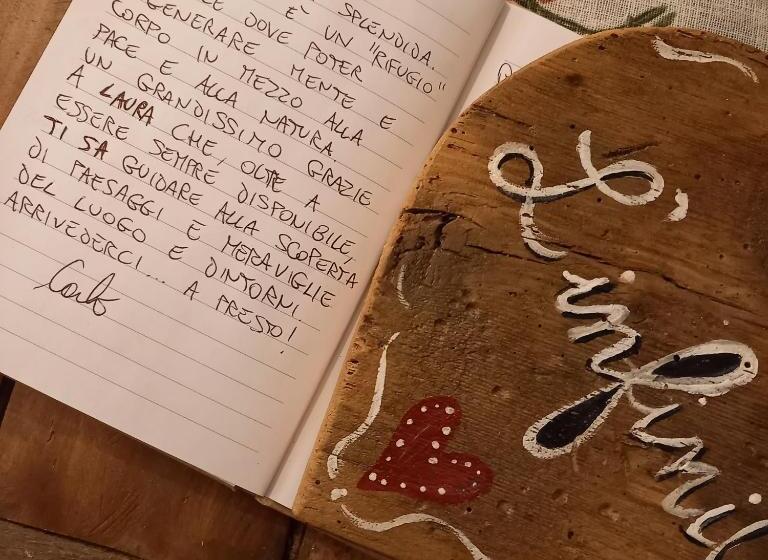 SPLENDIDA.
È UN "RIFUGIO"
DOVE POTER
GENERARE MENTE E
CORPO IN MEZZO ALLA
PACE E ALLA NATURA.
UN GRANDISSIMO GRAZIE
A LAURA CHE, OLTE A
ESSERE SEMPRE DISPONIBILE,
TI SA GUIDARE ALLA SCOPERTA
DI PAESAGGI E MERAVIGLIE
DEL LUOGO E DINTORNI.
ARRIVEDERCI... A PRESTO!
Carlo
L'
infini